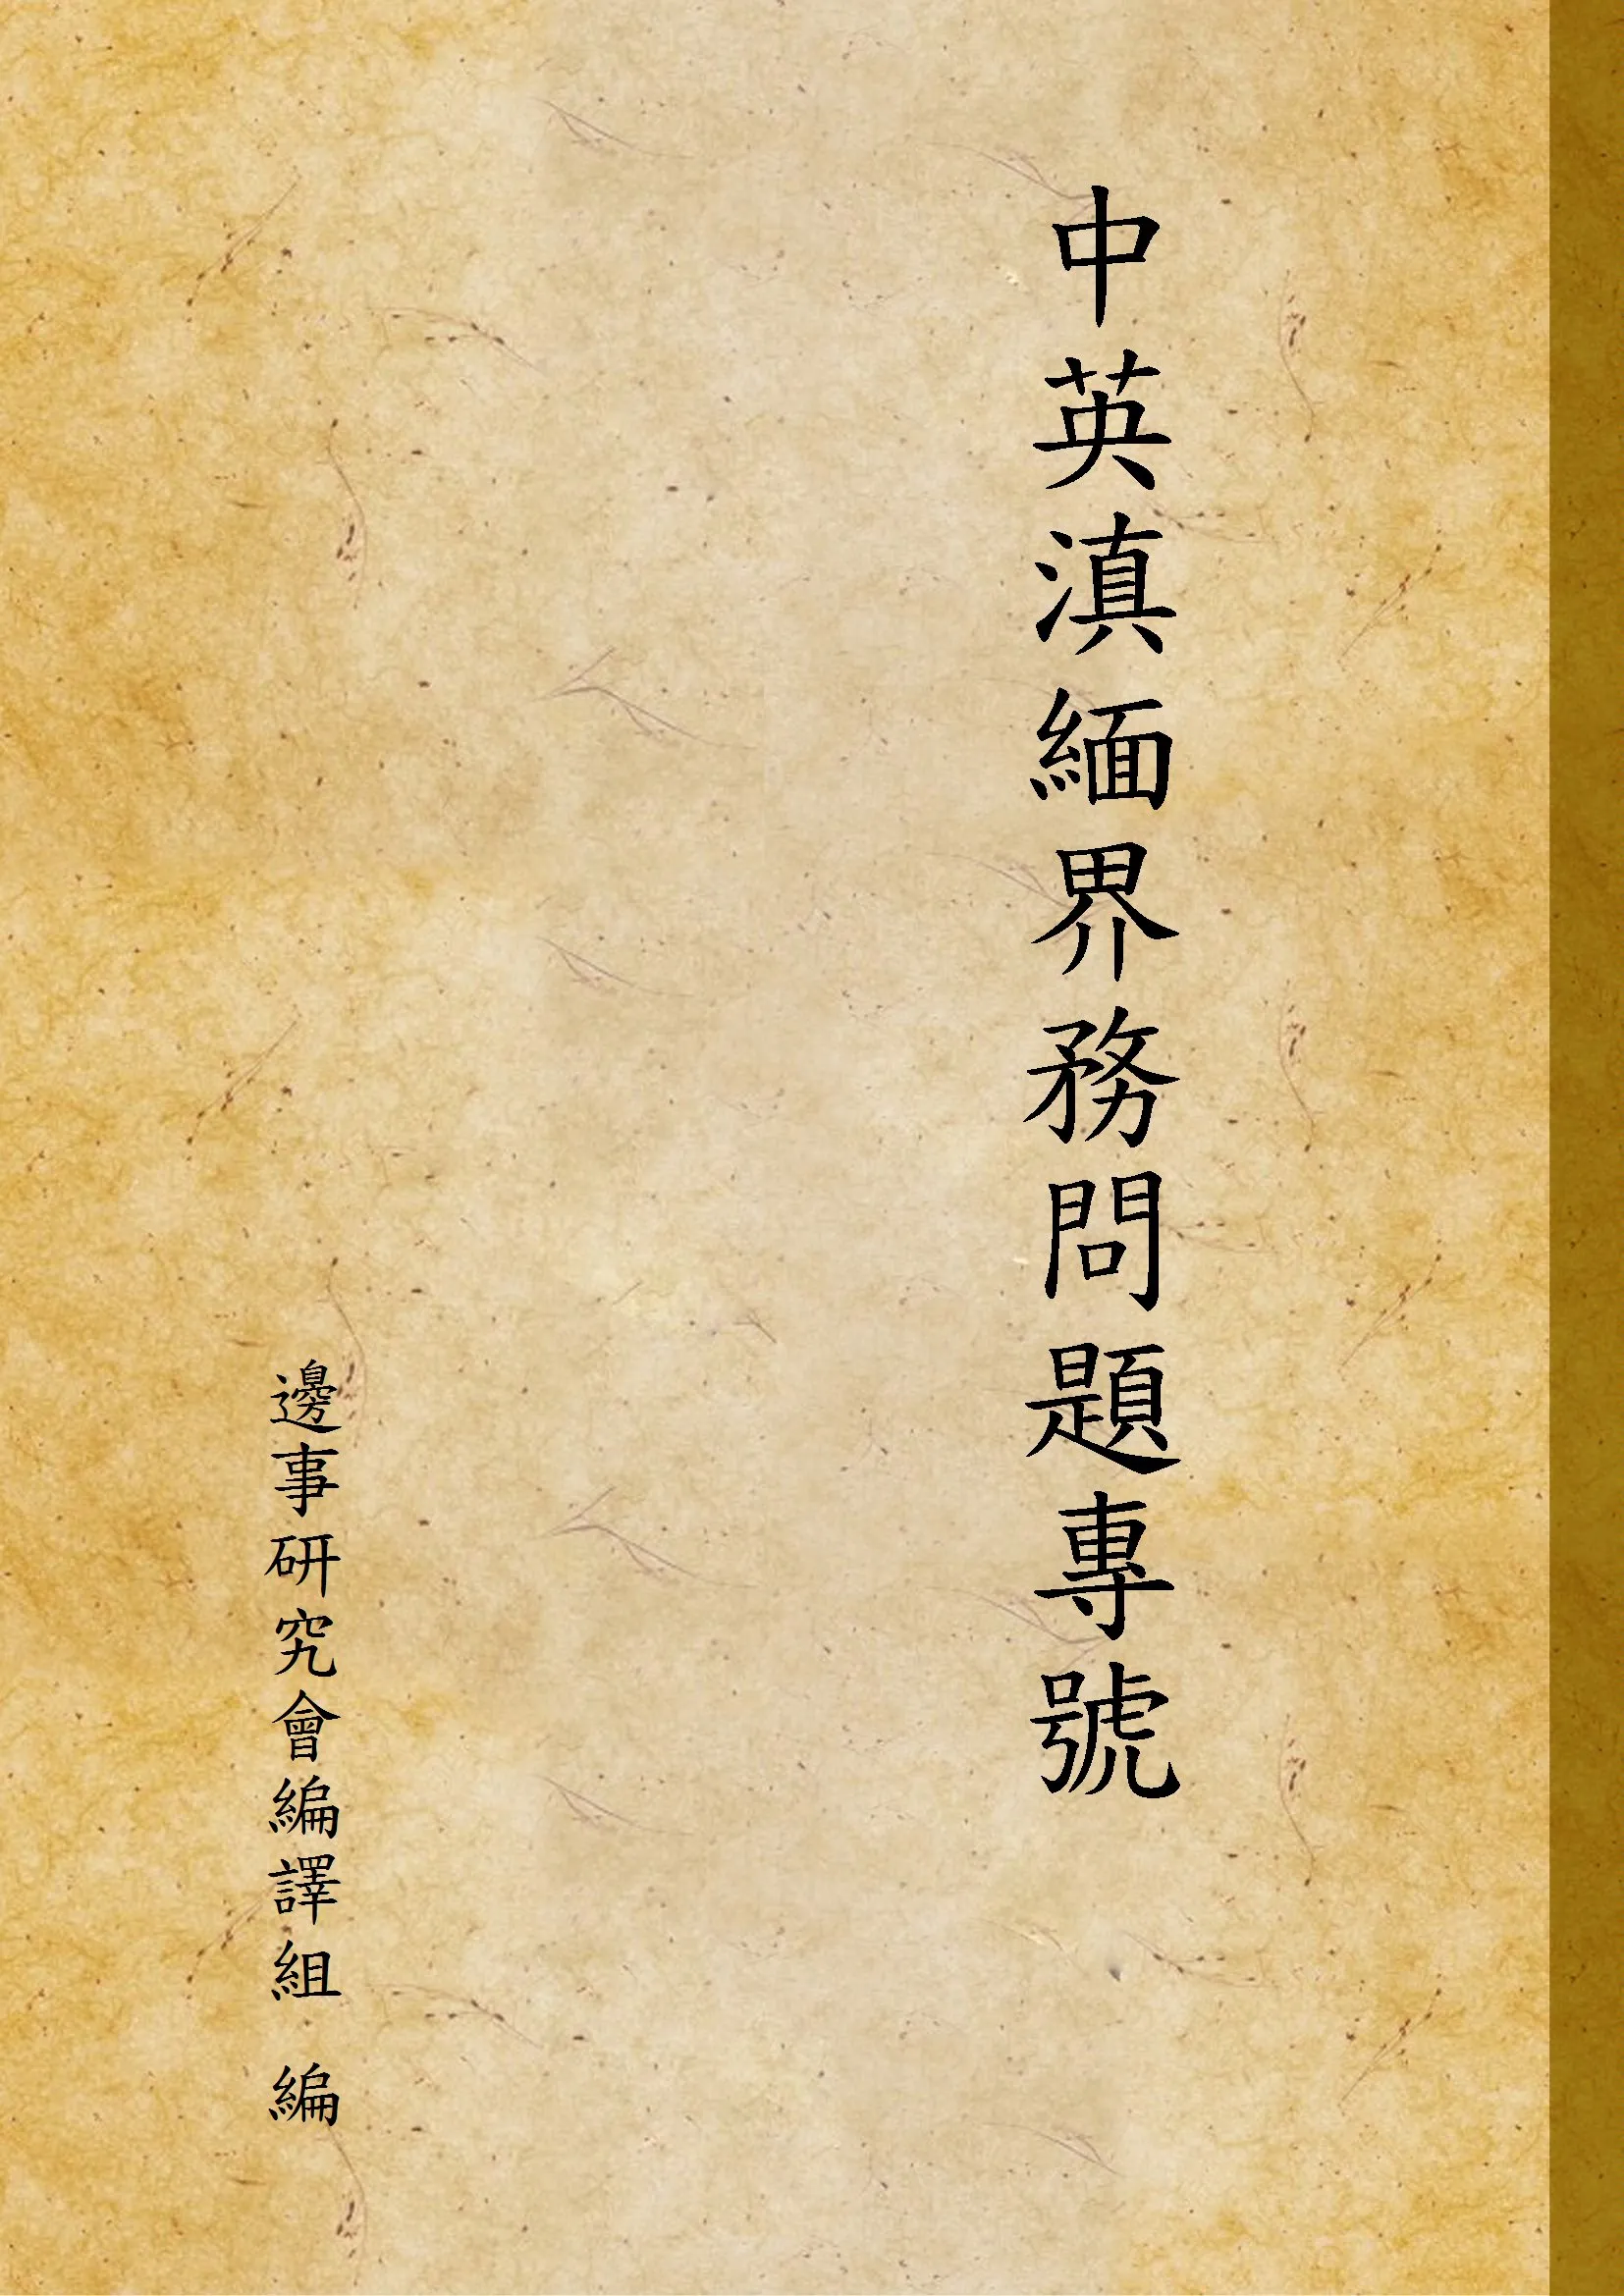 中英滇緬界務問題專號
邊事研究會編譯組 編